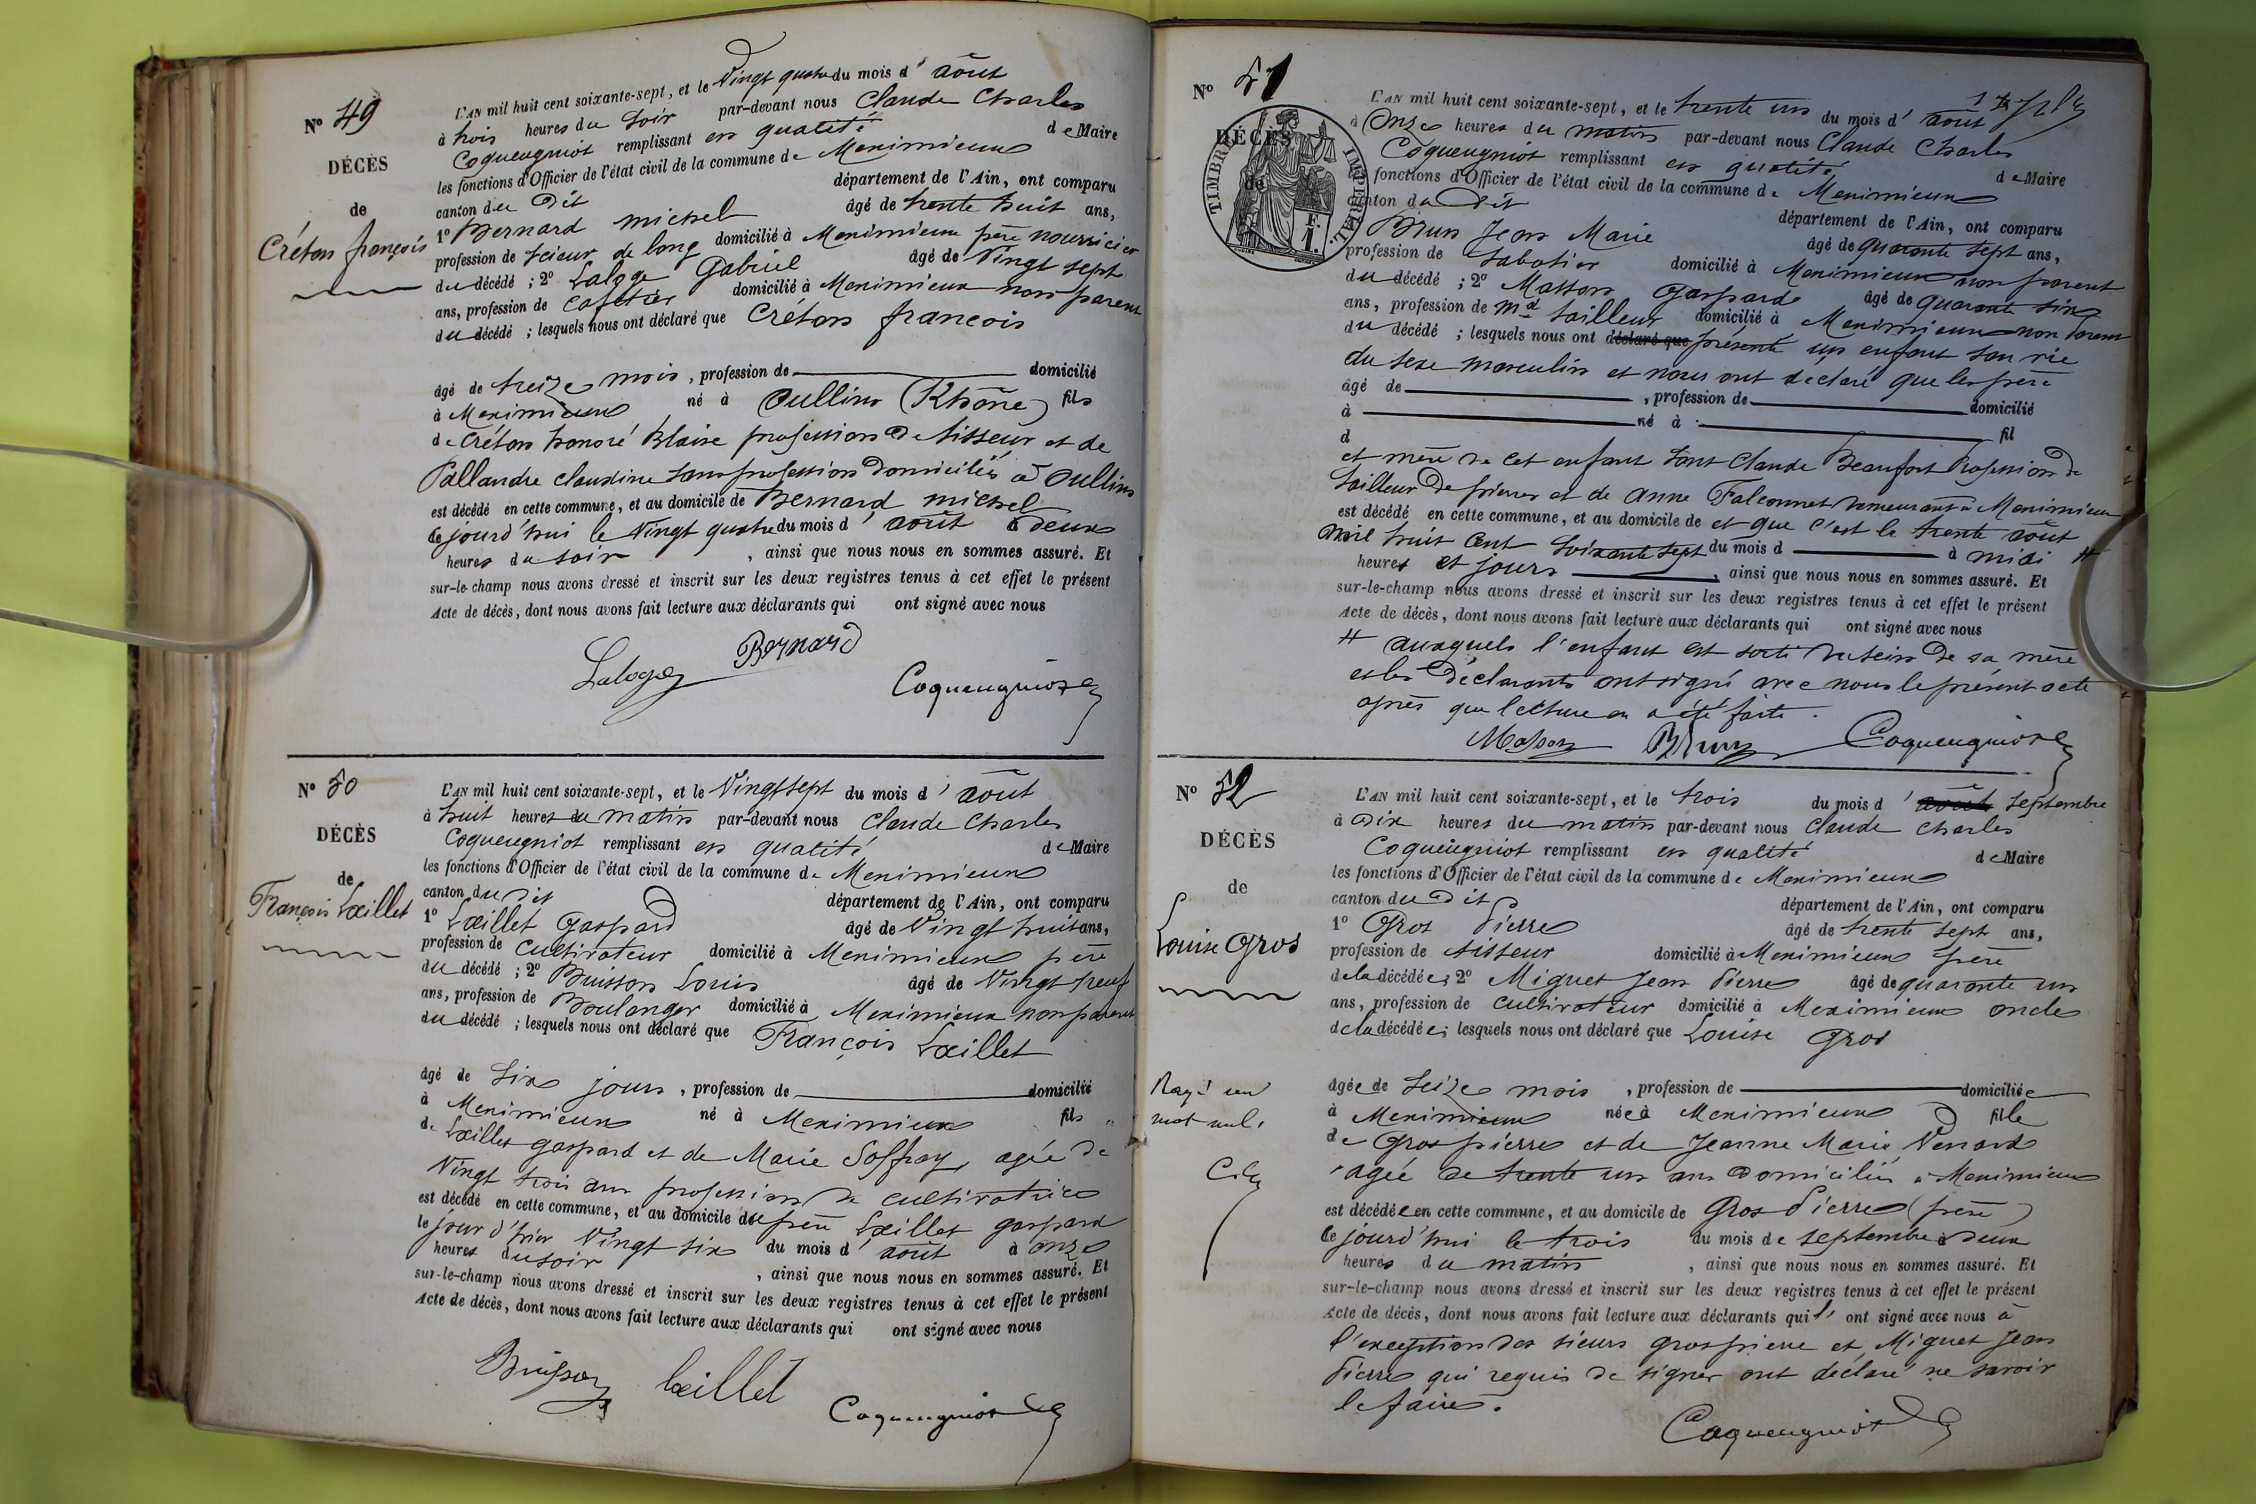 N° 49
DÉCÈS
de
Créton françois
L'AN mil huit cent soixante-sept, et le Vingt quatre du mois d' août
à trois heures du soir par-devant nous Claude Charles
Coqueugniot remplissant en qualité de Maire
les fonctions d'Officier de l'état civil de la commune de Meximieux
canton du dit département de l'Ain, ont comparu
1° Bernard michel âgé de trente huit ans,
profession de scieur de long domicilié à Meximieux père nourricier
du décédé ; 2° Laloge Gabriel âgé de Vingt sept
ans, profession de cafetier domicilié à Meximieux non parent
du décédé ; lesquels nous ont déclaré que Créton françois
âgé de treize mois , profession de domicilié
à Meximieux né à Oullins (Rhône) fils
de Créton honoré Blaise profession de tisseur et de
Pallandre claudine sans profession domiciliés à Oullins
est décédé en cette commune, et au domicile de Bernard michel
ce jourd'hui le Vingt quatre du mois d' août à deux
heures du soir , ainsi que nous nous en sommes assuré. Et
sur-le-champ nous avons dressé et inscrit sur les deux registres tenus à cet effet le présent
Acte de décès, dont nous avons fait lecture aux déclarants qui ont signé avec nous
Laloge Bernard
Coqueugniot
N° 50
DÉCÈS
de
François Lœillet
L'AN mil huit cent soixante-sept, et le Vingt sept du mois d' août
à huit heures du matin par-devant nous Claude Charles
Coqueugniot remplissant en qualité de Maire
les fonctions d'Officier de l'état civil de la commune de Meximieux
canton du dit département de l'Ain, ont comparu
1° Lœillet Gaspard âgé de Vingt huit ans,
profession de cultivateur domicilié à Meximieux père
du décédé ; 2° Buisson Louis âgé de Vingt neuf
ans, profession de Boulanger domicilié à Meximieux non parent
du décédé ; lesquels nous ont déclaré que François Lœillet
âgé de six jours , profession de domicilié
à Meximieux né à Meximieux fils
de Lœillet gaspard et de Marie Soffray, agée de
Vingt trois ans profession de cultivatrice
est décédé en cette commune, et au domicile du père Lœillet gaspard
le jour d'hier Vingt six du mois d' août à onze
heures du soir , ainsi que nous nous en sommes assuré. Et
sur-le-champ nous avons dressé et inscrit sur les deux registres tenus à cet effet le présent
Acte de décès, dont nous avons fait lecture aux déclarants qui ont signé avec nous
Buisson Lœillet
Coqueugniot
N° 51
DÉCÈS
de
TIMBRE IMPÉRIAL
F.
1.
L'AN mil huit cent soixante-sept, et le trente un du mois d' août
à Onze heures du matin par-devant nous Claude Charles
Coqueugniot remplissant en qualité de Maire
fonctions d'Officier de l'état civil de la commune de Meximieux
canton du dit département de l'Ain, ont comparu
Brun Jean Marie âgé de quarante sept ans,
profession de Sabotier domicilié à Meximieux non parent
du décédé ; 2° Masson Gaspard âgé de quarante six
ans, profession de md tailleur domicilié à Meximieux non parent
du décédé ; lesquels nous ont déclaré que présenté un enfant san vie
du sexe masculin et nous ont déclaré que les père
âgé de , profession de domicilié
à né à fil
d
et mère de cet enfant sont Claude Beaufort Profession de
tailleur de pierres et de anne Falconnet demeurant à Meximieux
est décédé en cette commune, et au domicile de et que c'est le trente août
mil huit cent soixante sept du mois d à midi #
heures et jours , ainsi que nous nous en sommes assuré. Et
sur-le-champ nous avons dressé et inscrit sur les deux registres tenus à cet effet le présent
Acte de décès, dont nous avons fait lecture aux déclarants qui ont signé avec nous
# auxquels l'enfant est sorti du sein de sa mère
et les déclarants ont signé avec nous le présent acte
après que lecture en a été faite.
Masson Brun Coqueugniot
N° 52
DÉCÈS
de
Louise Gros
Rayé un
mot nul.
L'AN mil huit cent soixante-sept, et le trois du mois d' août septembre
à Dix heures du matin par-devant nous Claude Charles
Coqueugniot remplissant en qualité de Maire
les fonctions d'Officier de l'état civil de la commune de Meximieux
canton du Dit département de l'Ain, ont comparu
1° Gros Pierre âgé de trente sept ans,
profession de tisseur domicilié à Meximieux père
de la décédée ; 2° Miguet Jean Pierre âgé de quarante un
ans, profession de cultivateur domicilié à Meximieux oncle
de la décédée ; lesquels nous ont déclaré que Louise Gros
âgée de seize mois , profession de domiciliée
à Meximieux née à Meximieux fille
de Gros pierre et de Jeanne Marie Venard
agée de trente un ans domiciliés à Meximieux
est décédée en cette commune, et au domicile de Gros Pierre (père)
ce jourd'hui le trois du mois de septembre à deux
heures du matin , ainsi que nous nous en sommes assuré. Et
sur-le-champ nous avons dressé et inscrit sur les deux registres tenus à cet effet le présent
Acte de décès, dont nous avons fait lecture aux déclarants qui l' ont signé avec nous à
l'exception des sieurs Gros pierre et Miguet Jean
Pierre qui requis de signer ont déclaré ne savoir
le faire.
Coqueugniot